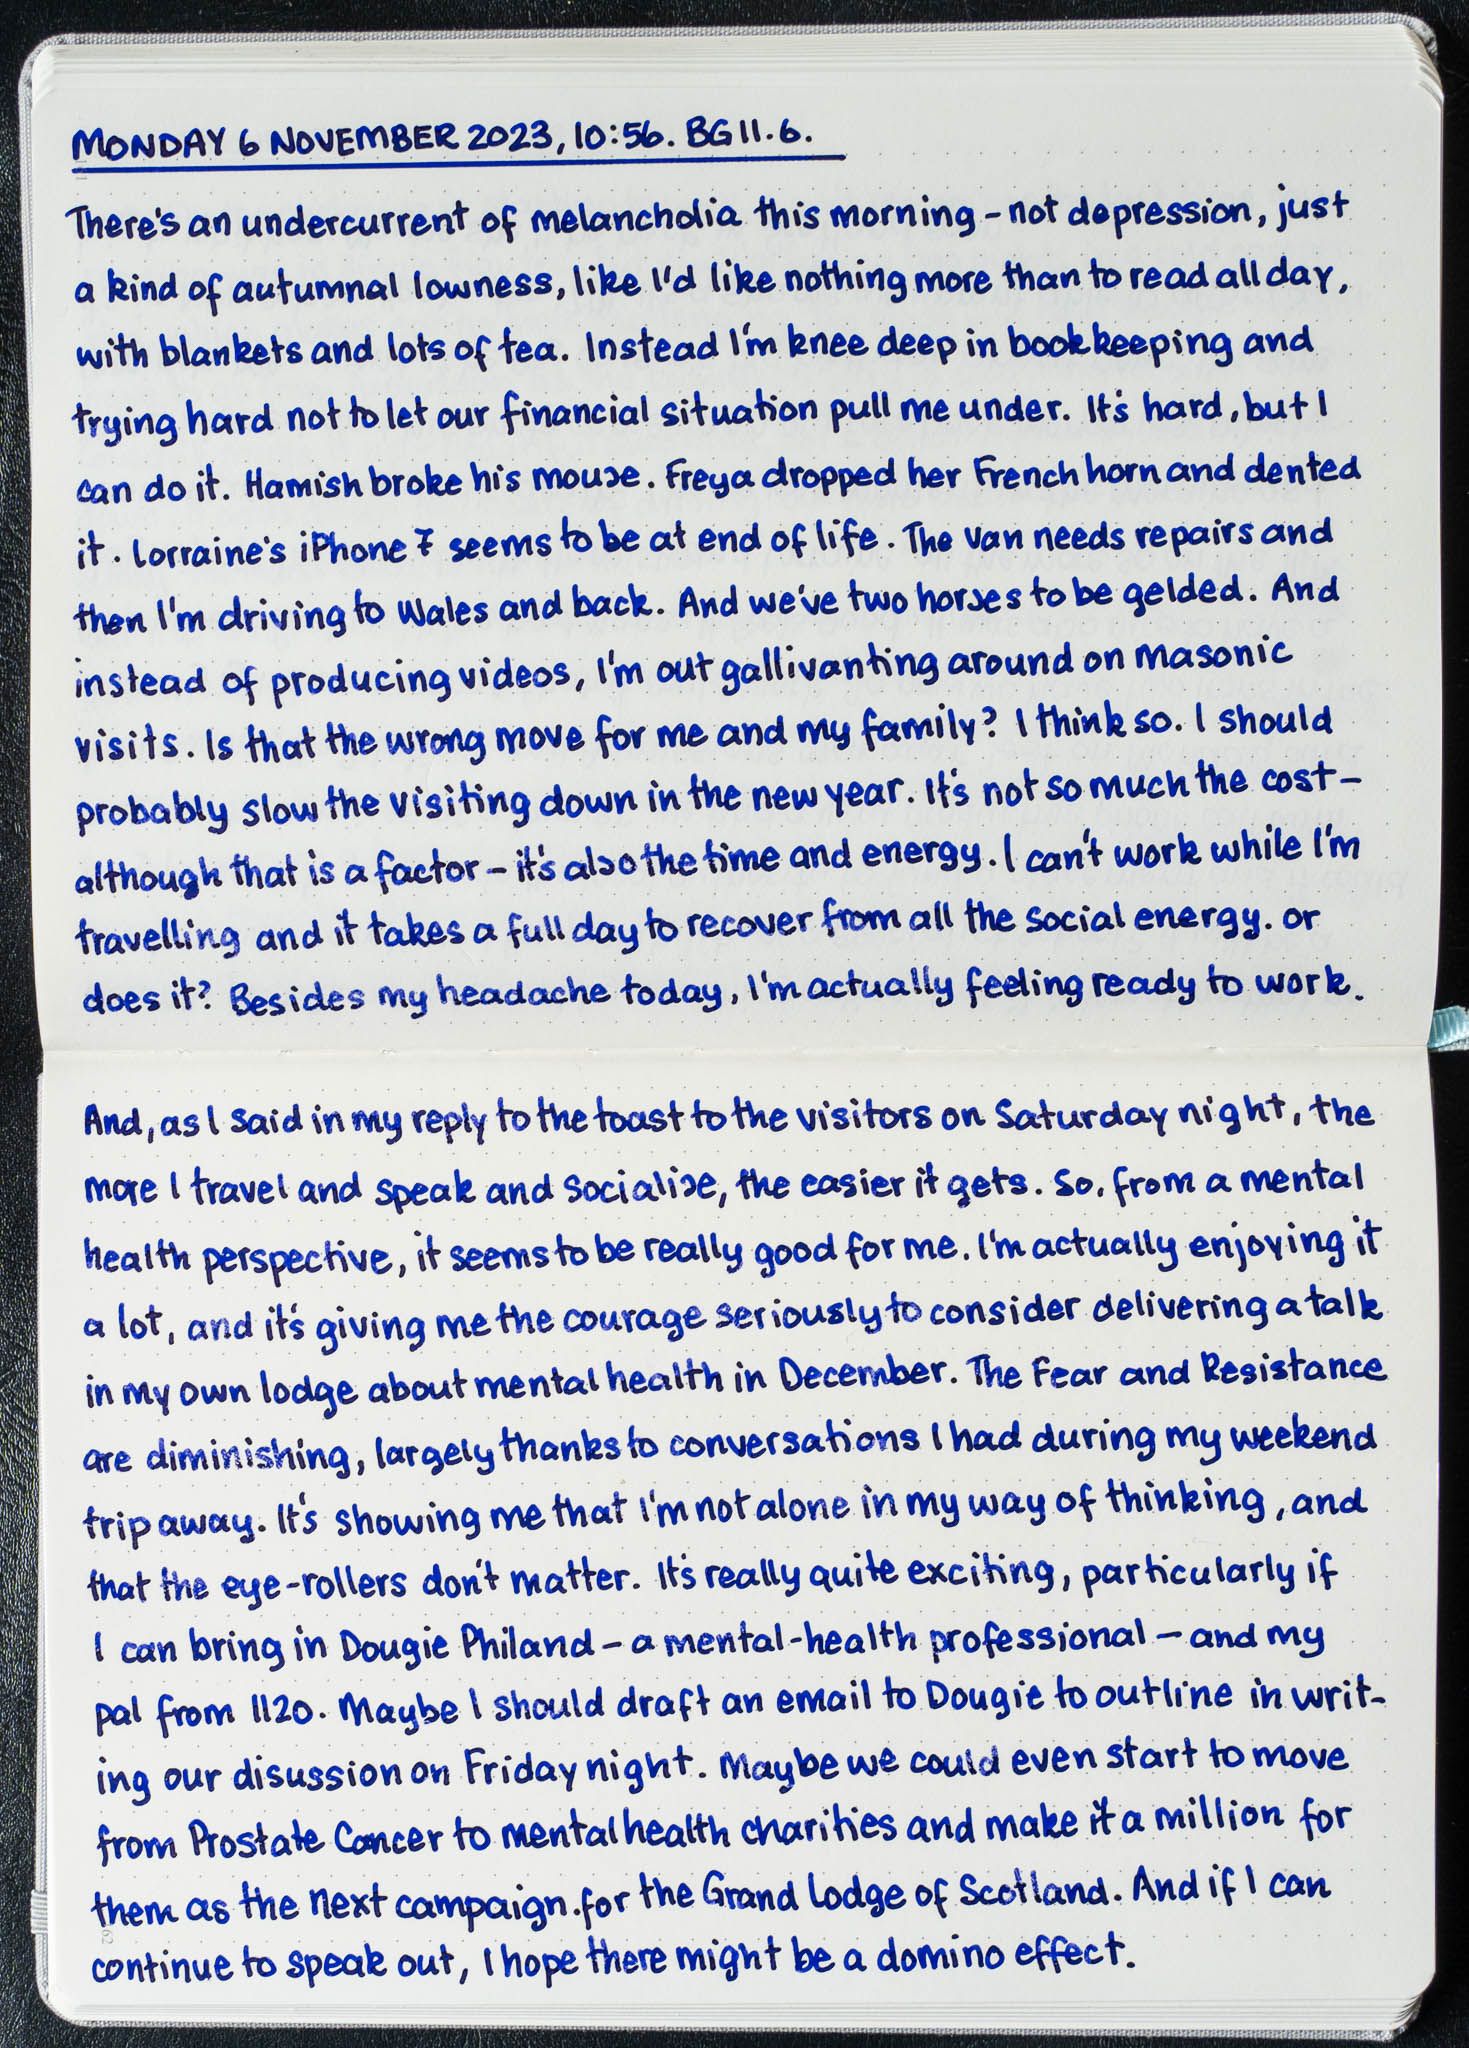 MONDAY 6 NOVEMBER 2023, 10:56. BG 11.6.
There's an undercurrent of melancholia this morning – not depression, just
a kind of autumnal lowness, like I'd like nothing more than to read all day,
with blankets and lots of tea. Instead I'm knee deep in bookkeeping and
trying hard not to let our financial situation pull me under. It's hard, but I
can do it. Hamish broke his mouse. Freya dropped her French horn and dented
it. Lorraine's iPhone 7 seems to be at end of life. The van needs repairs and
then I'm driving to Wales and back. And we've two horses to be gelded. And
instead of producing videos, I'm out gallivanting around on masonic
visits. Is that the wrong move for me and my family? I think so. I should
probably slow the visiting down in the new year. It's not so much the cost –
although that is a factor – it's also the time and energy. I can't work while I'm
travelling and it takes a full day to recover from all the social energy. or
does it? Besides my headache today, I'm actually feeling ready to work.
And, as I said in my reply to the toast to the visitors on Saturday night, the
more I travel and speak and socialise, the easier it gets. So, from a mental
health perspective, it seems to be really good for me. I'm actually enjoying it
a lot, and it's giving me the courage seriously to consider delivering a talk
in my own lodge about mental health in December. The Fear and Resistance
are diminishing, largely thanks to conversations I had during my weekend
trip away. It's showing me that I'm not alone in my way of thinking, and
that the eye-rollers don't matter. It's really quite exciting, particularly if
I can bring in Dougie Philand – a mental-health professional – and my
pal from 1120. Maybe I should draft an email to Dougie to outline in writ-
ing our disussion on Friday night. Maybe we could even start to move
from Prostate Cancer to mental health charities and make it a million for
them as the next campaign for the Grand Lodge of Scotland. And if I can
continue to speak out, I hope there might be a domino effect.